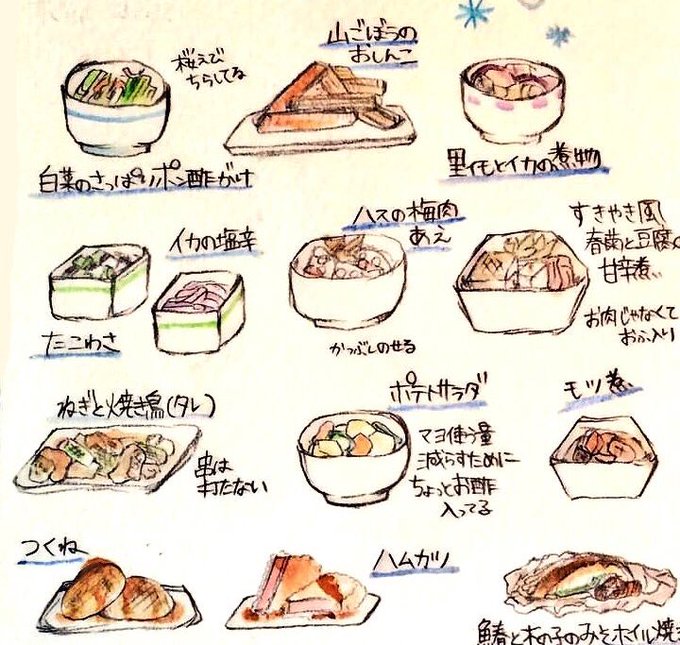 桜えび
ちらしてる
白菜のさっぱりポン酢がけ
山ごぼうの
おしんこ
里イモとイカの煮物
イカの塩辛
たこわさ
ハスの梅肉
あえ
かつぶしのせる
すきやき風
春菊と豆腐の
甘辛煮
お肉じゃなくて
おふ入り
ねぎと焼き鳥(タレ)
串は
打たない
ポテトサラダ
マヨ使う量
減らすために
ちょっとお酢
入ってる
モツ煮
つくね
ハムカツ
鰆と木の子のみそホイル焼き